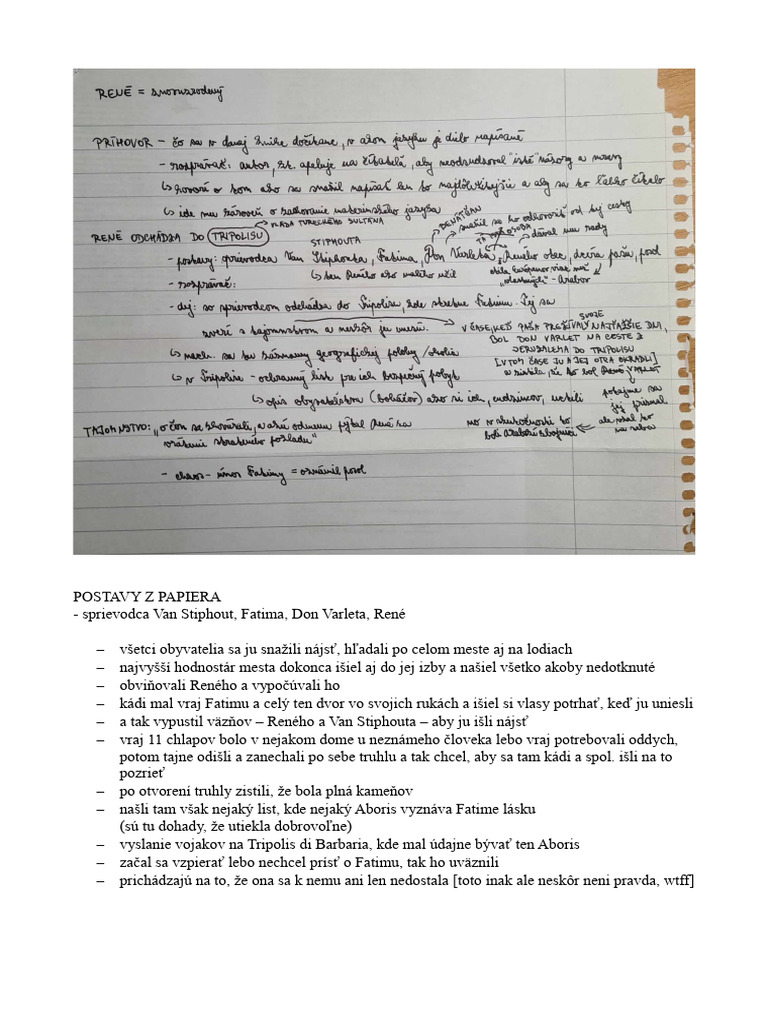 RENÉ = znovuzrodený
PRÍHOVOR – čo sa v danej knihe dočítame, v akom jazyku je dielo napísané
- rozprávač: autor, zk. apeluje na čitateľa, aby neodsudzoval "isté" názory a mravy
↳ hovorí o tom ako sa snažil napísať len to najdôležitejšie a aby sa to ľahko čítalo
↳ ide mu zároveň o zachovanie materinského jazyka
RENÉ ODCHÁDZA DO TRIPOLISU
VLÁDA TURECKÉHO SULTÁNA
STIPHOUTA
BENÁTČAN
snažil sa ho odhovoriť od tej cesty
TÁ OSOBA
dával mu rady
- postavy: sprievodca Van Stiphouta, Fatima, Don Varleta, Reného otec, dcéra pašu, posol
↳ ten Reného ako malého učil
- rozprávač:
- dej: so sprievodcom odchádza do Tripolisu, kde stretne Fatimu. Tej sa
zverí s tajomstvom a neskôr ju unesú.
V ČASE, KEĎ PAŠA PREŽÍVALY SVOJE NAJŤAŽŠIE DNI,
BOL DON VARLET NA CESTE Z
JERUZALEMA DO TRIPOLISU
[V TOM ČASE JU A JEJ OTCA OKRADLI]
a zistila, že to bol VARLET
↳ nach. sa tu záznamy geografickej polohy / okolia
↳ v Tripolise - ochranný list pre ich bezpečný pobyt
↳ opis obyvateľstva (boháčov) ako si ich, cudzincov, uctili
TAJOMSTVO: "o čom sa zhovárali, a akú odmenu pýtal René za
vrátenie strateného pokladu"
potajme sa
jej priznal
ale vzal to
na seba
no v skutočnosti to
boli arabskí zbojníci
- chaos - únos Fatimy = oznámil posol
POSTAVY Z PAPIERA
- sprievodca Van Stiphout, Fatima, Don Varleta, René
– všetci obyvatelia sa ju snažili nájsť, hľadali po celom meste aj na lodiach
– najvyšší hodnostár mesta dokonca išiel aj do jej izby a našiel všetko akoby nedotknuté
– obviňovali Reného a vypočúvali ho
– kádi mal vraj Fatimu a celý ten dvor vo svojich rukách a išiel si vlasy potrhať, keď ju uniesli
– a tak vypustil väzňov – Reného a Van Stiphouta – aby ju išli nájsť
– vraj 11 chlapov bolo v nejakom dome u neznámeho človeka lebo vraj potrebovali oddych,
potom tajne odišli a zanechali po sebe truhlu a tak chcel, aby sa tam kádi a spol. išli na to
pozrieť
– po otvorení truhly zistili, že bola plná kameňov
– našli tam však nejaký list, kde nejaký Aboris vyznáva Fatime lásku
(sú tu dohady, že utiekla dobrovoľne)
– vyslanie vojakov na Tripolis di Barbaria, kde mal údajne bývať ten Aboris
– začal sa vzpierať lebo nechcel prísť o Fatimu, tak ho uväznili
– prichádzajú na to, že ona sa k nemu ani len nedostala [toto inak ale neskôr neni pravda, wtff]